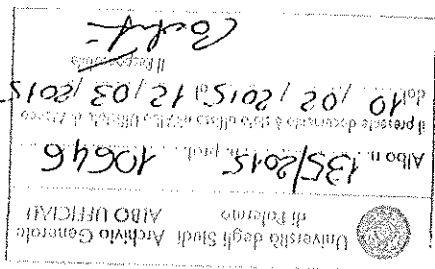 Università degli Studi Archivio Generale
di Palermo ALBO UFFICIALE
Albo n. 135/2015 prot. 10646
Il presente documento è stato affisso all'Albo Ufficiale di Ateneo
dal 10 / 02 / 2015 al 12 / 03 / 2015
Il Responsabile